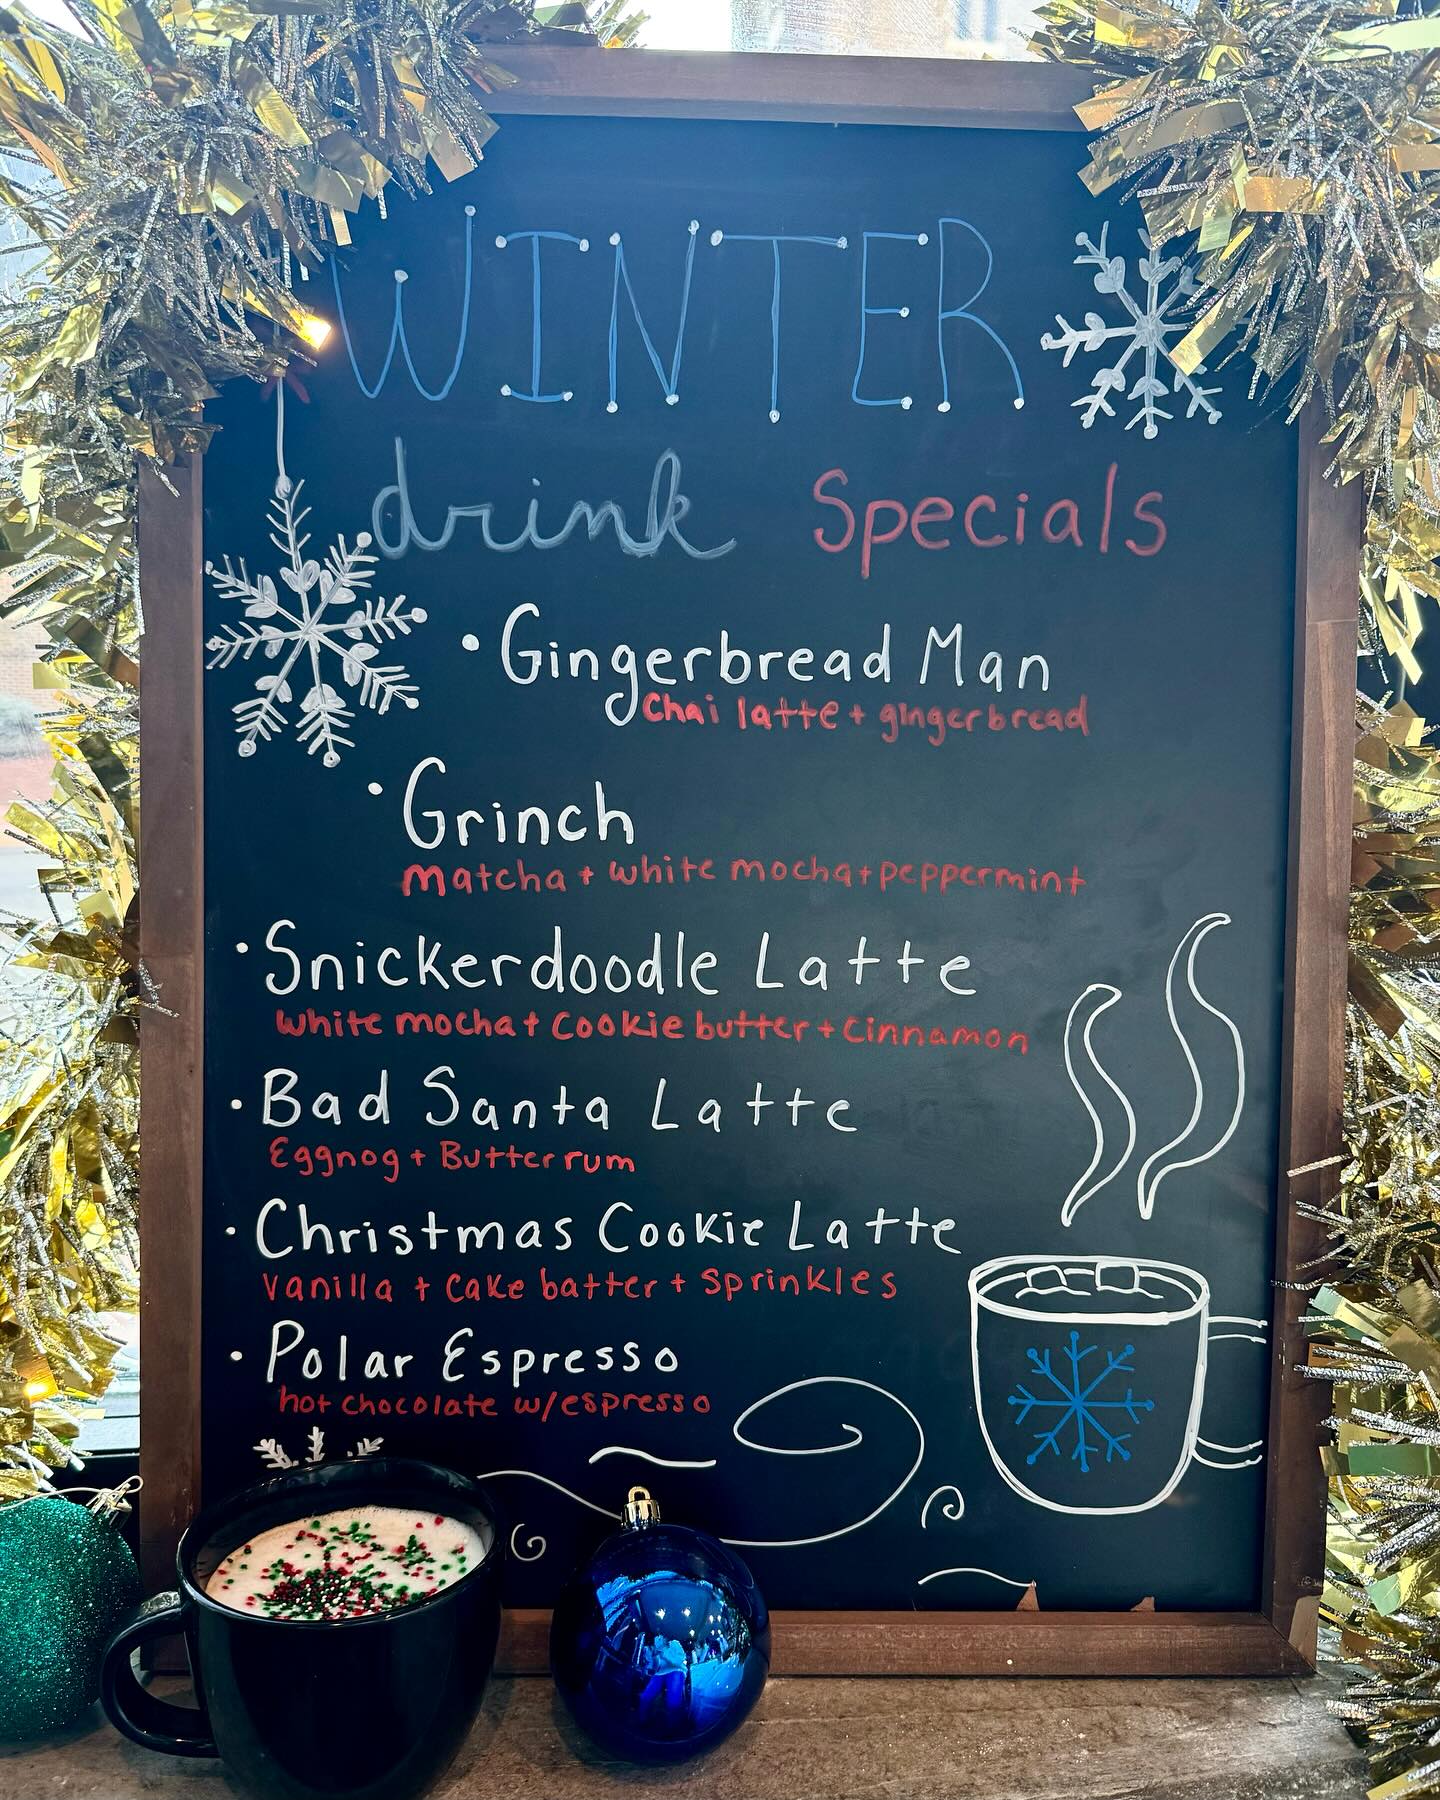 WINTER
drink Specials
• Gingerbread Man
Chai latte + gingerbread
• Grinch
Matcha + white mocha + peppermint
• Snickerdoodle Latte
white mocha + cookie butter + cinnamon
• Bad Santa Latte
Eggnog + Butter rum
• Christmas Cookie Latte
vanilla + cake batter + sprinkles
• Polar Espresso
hot chocolate w/espresso